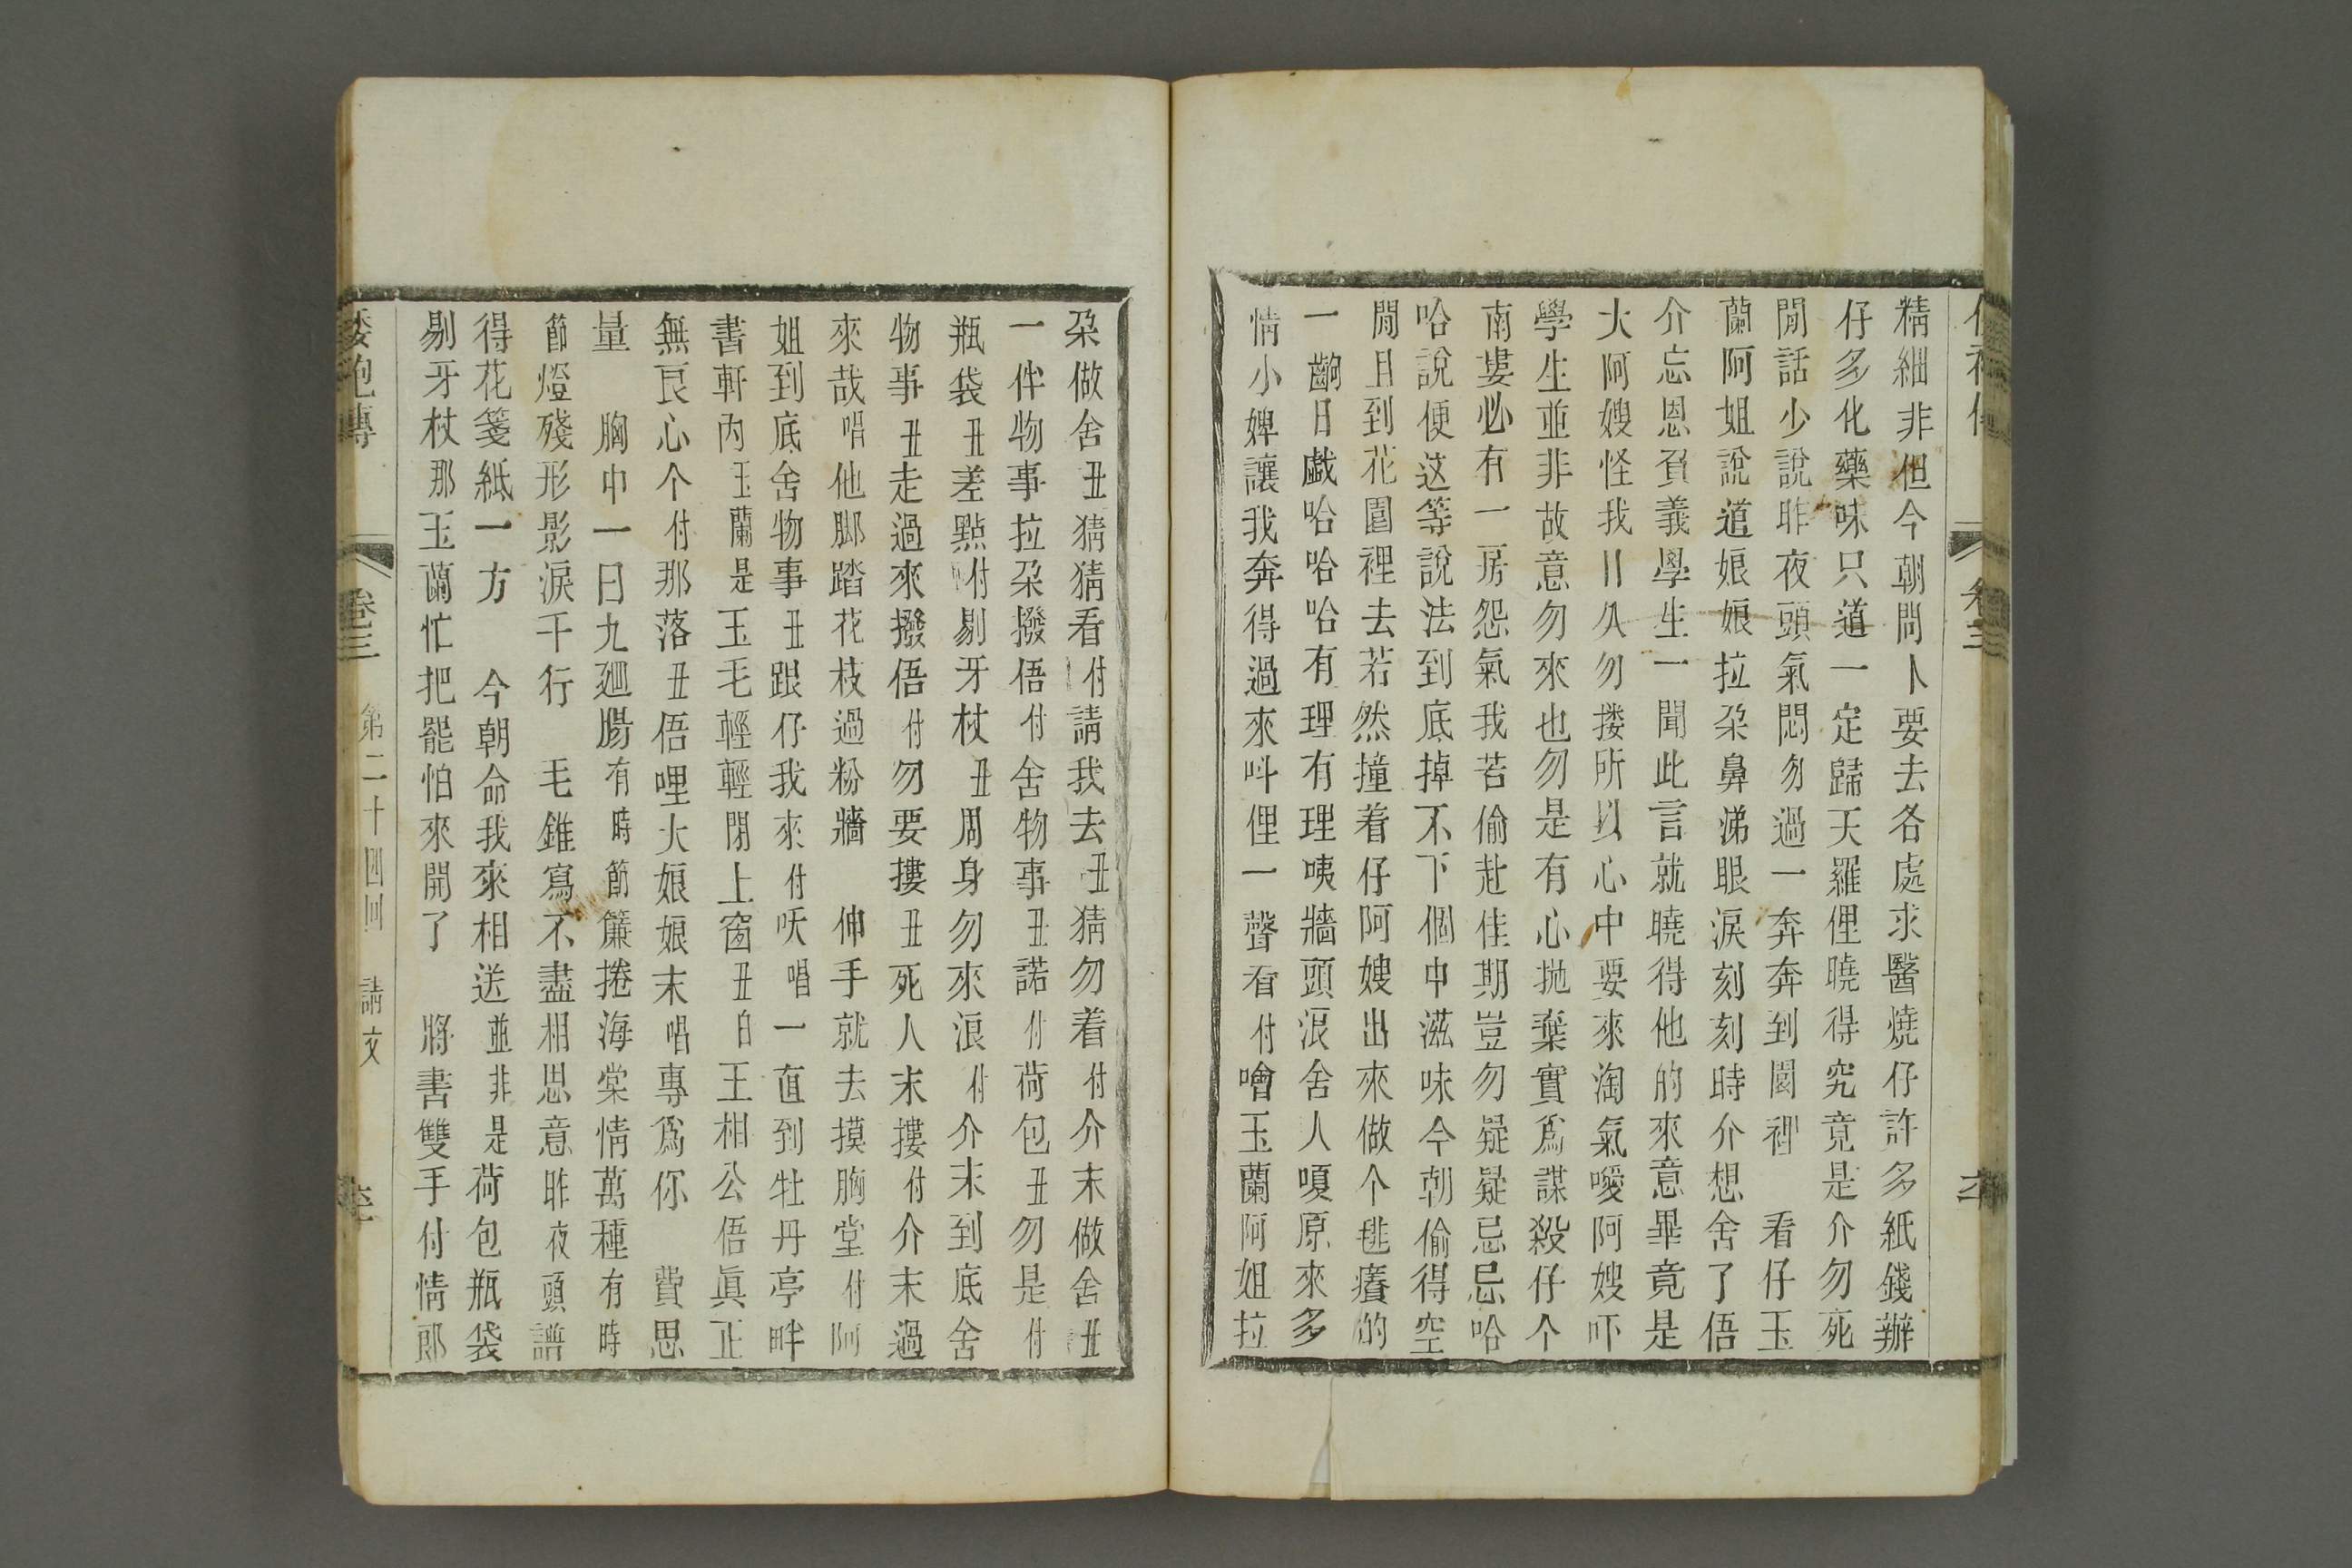 精細非但今朝問卜要去各處求醫燒仔許多紙錢辦
仔多化藥味只道一定歸天羅俚曉得究竟是介勿死
閒話少說昨夜頭氣悶勿過一奔奔到園裡 看仔玉
蘭阿姐說道娘娘拉朶鼻涕眼淚刻刻時介想舍了俉
介忘恩負義學生一聞此言就曉得他的來意畢竟是
大阿嫂怪我日久勿摟所以心中要來淘氣噯阿嫂吓
學生並非故意勿來也勿是有心拋棄實爲謀殺仔个
南婁必有一房怨氣我若偷赴佳期豈勿疑疑忌忌哈
哈說便这等說法到底掉不下個中滋味今朝偷得空
閒且到花園裡去若然撞着仔阿嫂出來做个毴癢的
一齣日戲哈哈哈有理有理咦牆頭浪舍人嗄原來多
情小婢讓我奔得過來呌俚一聲看付噲玉蘭阿姐拉
朶做舍丑猜猜看付請我去丑猜勿着付介末做舍丑
一件物事拉朶撥俉付舍物事丑諾付荷包丑勿是付
瓶袋丑差㸃付剔牙杖丑周身勿來浪付介末到底舍
物事丑走過來撥俉付勿要摟丑死人末摟付介末過
來哉唱他脚踏花枝過粉牆 伸手就去摸胸堂付阿
姐到底舍物事丑跟仔我來付吙唱一直到牡丹亭畔
書軒內玉蘭是玉毛輕輕閉上窗丑白王相公俉眞正
無良心个付那落丑俉哩大娘娘末唱專爲你 費思
量 胸中一日九廻腸有時節簾捲海棠情萬種有時
節燈殘形影淚千行 毛錐寫不盡相思意昨夜頭譜
得花箋紙一方 今朝命我來相送並非是荷包瓶袋
剔牙杖那玉蘭忙把罷怕來開了 將書雙手付情郎
倭袍傳 卷三 第二十四回 請文